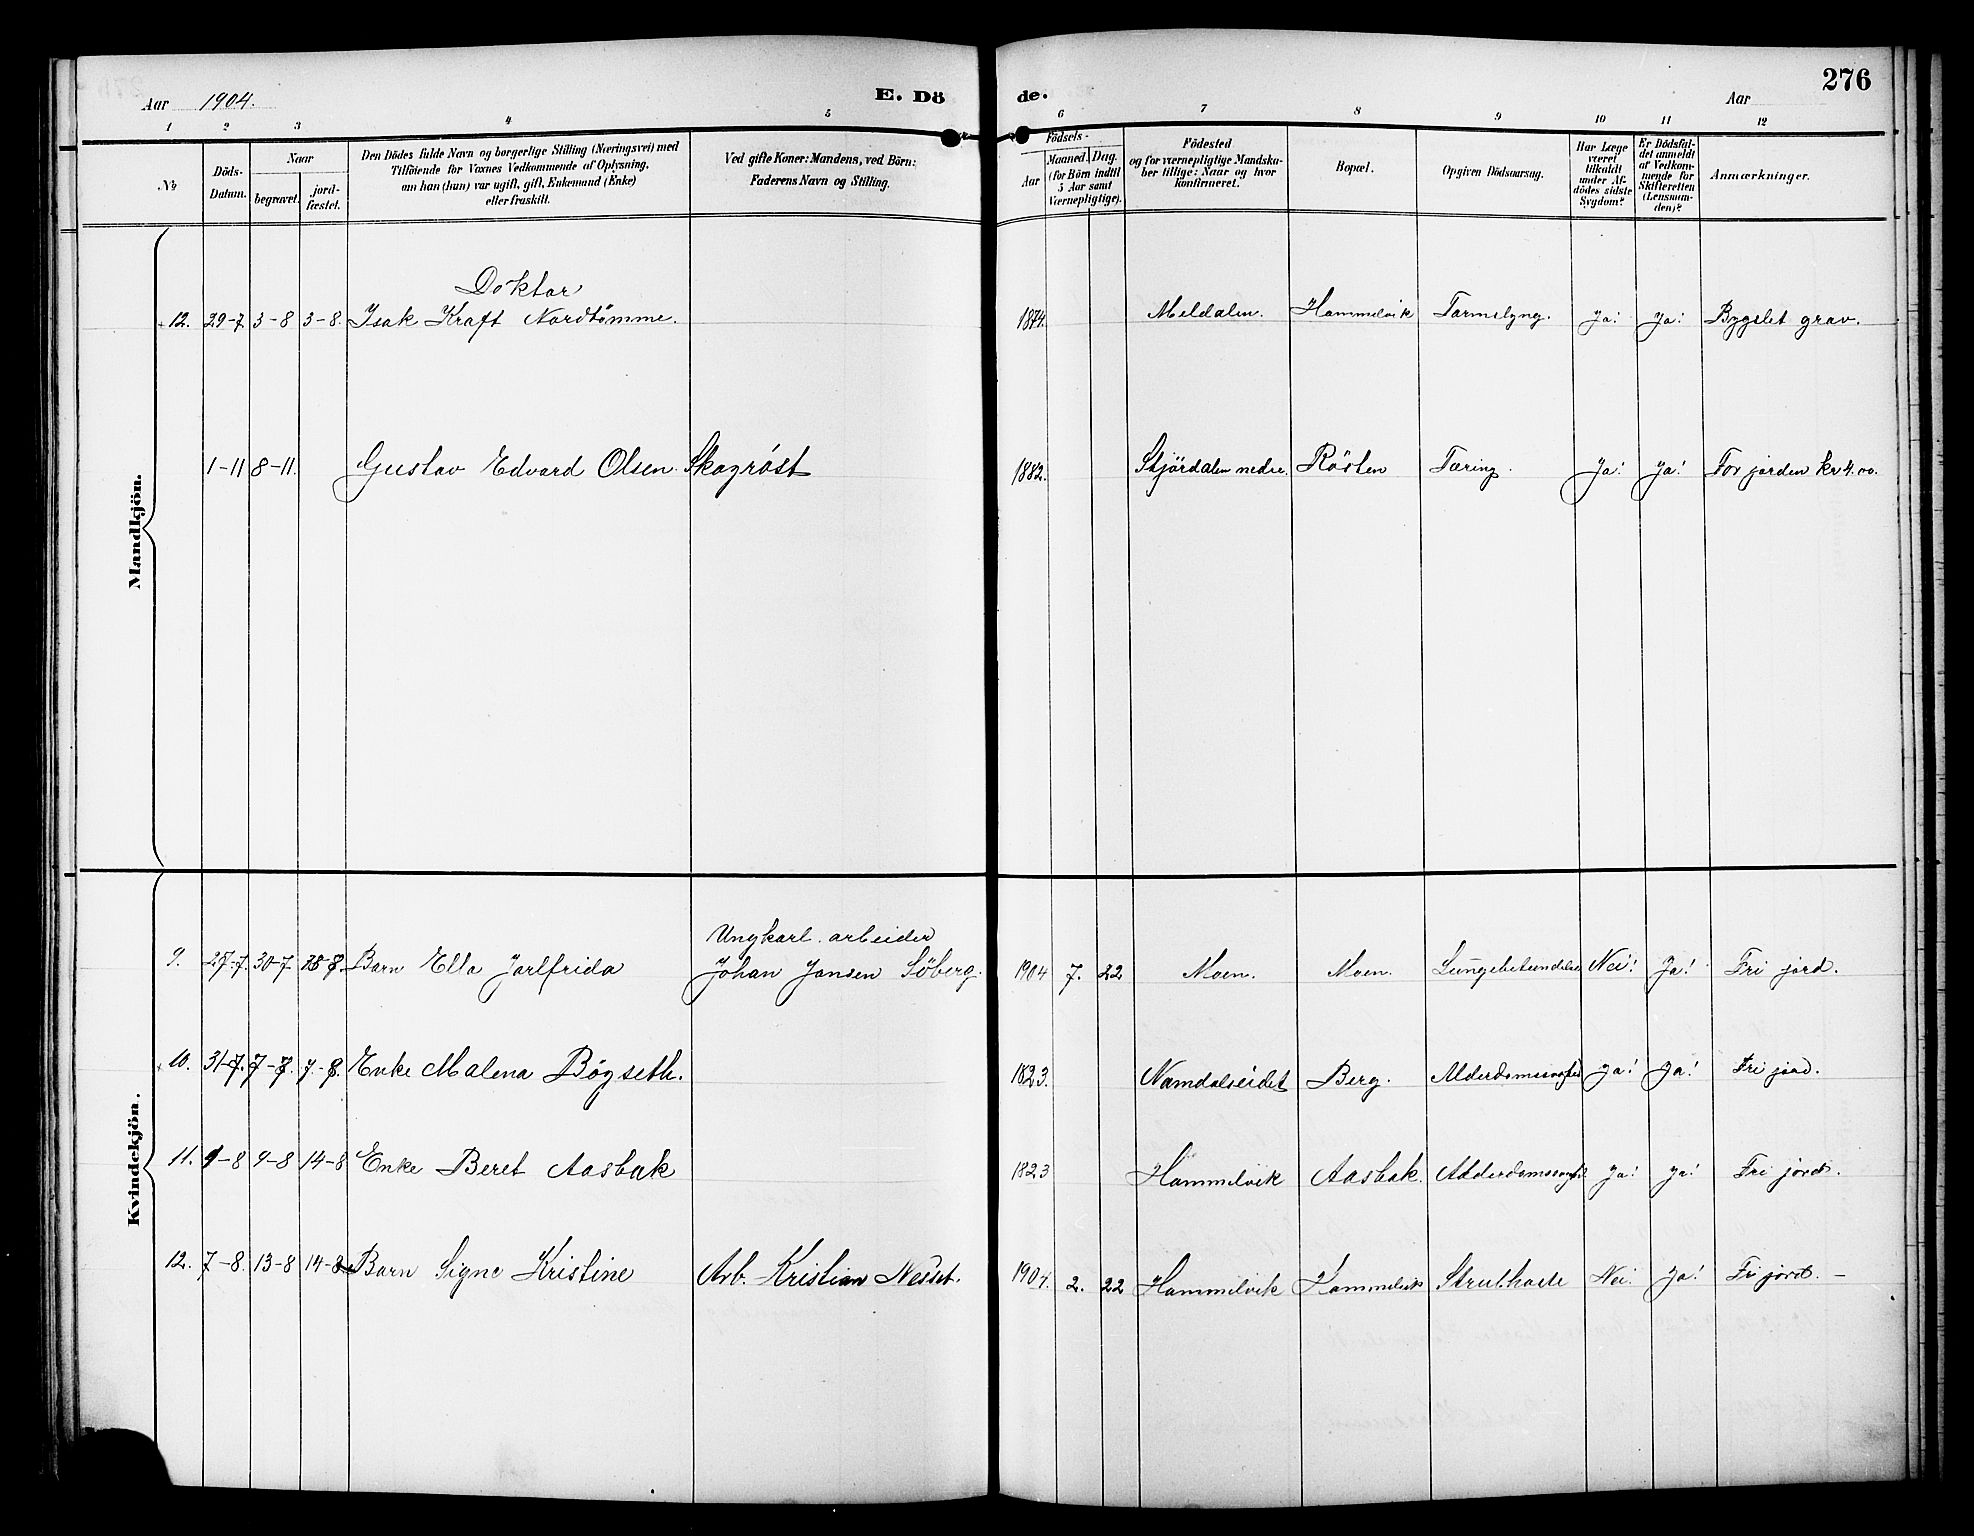 Aar 1904. E. Dö de. Aar 276
1 2 3 4 5 6 7 8 9 10 11 12
№ Döds-Datum. Naar begravet. jord-fæstet. Den Dödes fulde Navn og borgerlige Stilling (Næringsvei) med Tilföiende for Voxnes Vedkommende af Oplysning, om han (hun) var ugift, gift, Enkemand (Enke) eller fraskilt. Ved gifte Koner: Mandens, ved Börn: Faderens Navn og Stilling. Födsels- Aar Maaned. Dag. (for Börn indtil 5 Aar samt Værnepligtige). Födested og for værnepligtige Mandskaber tillige: Naar og hvor konfirmeret. Bopæl. Opgiven Dödsaarsag. Har Læge været tilkaldt under Afdödes sidste Sygdom? Er Dödsfaldet anmeldt af Vedkommende for Skifteretten (Lensmanden)? Anmærkninger.
Mandkjön.
Doktor
12. 29-7 3-8 3-8. Isak Kraft Nordtömme. 1874. Meldalen. Hommelvik Tarmslyng. Ja! Ja! Bygslet grav.
1-11 8-11. Gustav Edvard Olsen Skogröst 1882. Stjördalen nedre. Rösten Tæring. Ja! Ja! For jorden kr 4.00.
Kvindekjön.
Ungkarl. arbeider
9. 27-7. 30-7. Barn Ella Jarlfrida Johan Jansen Söberg. 1904 7. 22 Moen. Moen. Lungebetændelse Nei! Ja! Fri jord.
10. 31-7. 7-8. 7-8. Enke Malena Bögseth. 1823. Namdalseidet Berg. Alderdomssvaghed Ja! Ja! Fri jord.
11. 1-8 9-8 14-8 Enke Beret Aasbak 1823 Hommelvik Aasbak. Alderdomssvagh. Ja! Ja! Fri jord.
12. 7-8. 13-8 14-8 Barn Signe Kristine Arb. Kristian Nesset. 1904. 2. 22 Hommelvik Hommelvik Strubhoste Nei! Ja! Fri jord. —